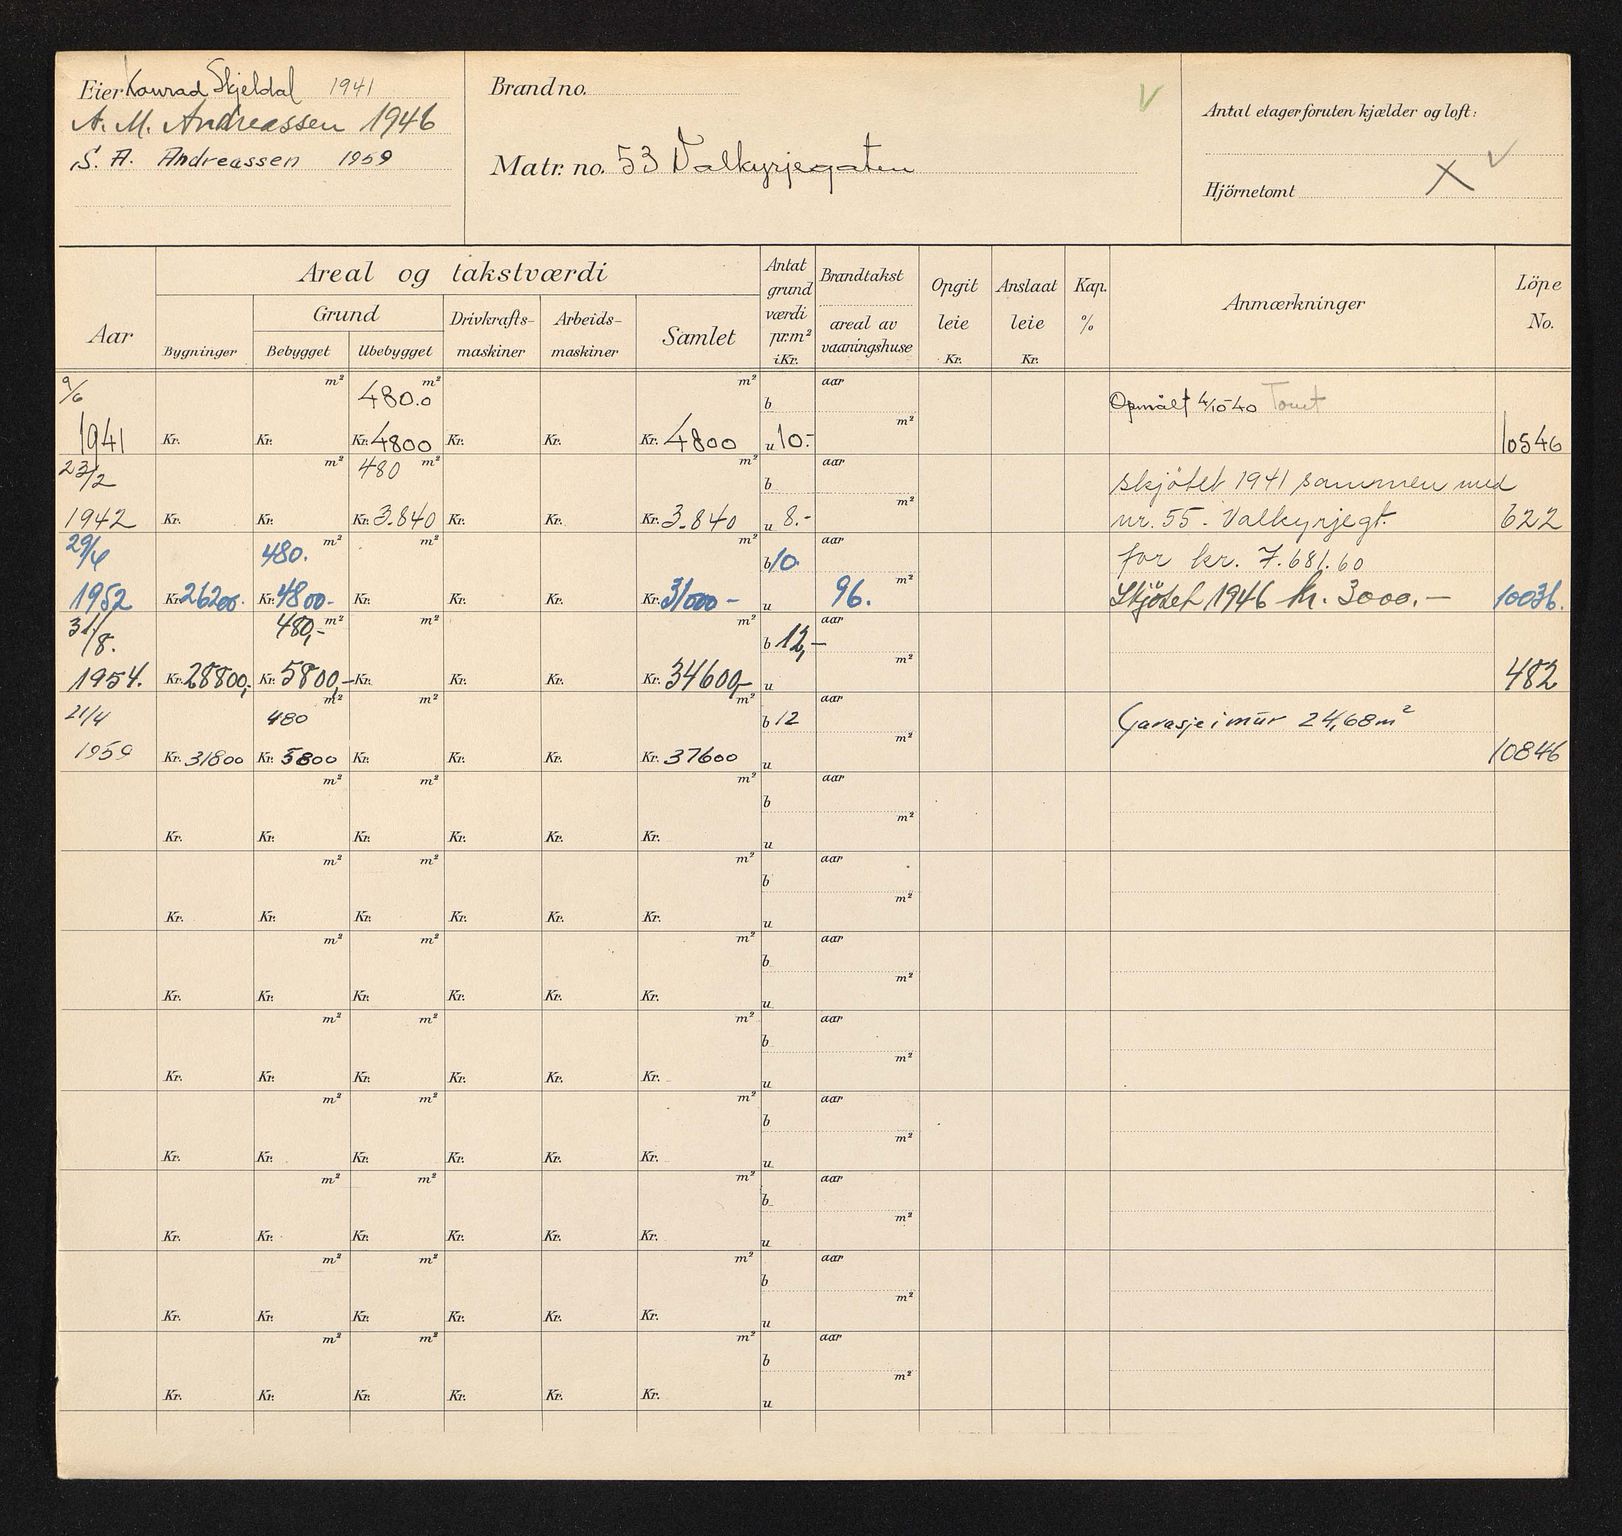 Eier Konrad Skjeldal 1941
A. M. Andreassen 1946
S. A. Andreassen 1959
Brand no.
Matr. no. 53 Valkyrjegaten
Antal etager foruten kjælder og loft:
Hjörnetomt X
Aar
Areal og takstværdi
Grund
Bygninger Bebygget Ubebygget
Drivkrafts-maskiner
Arbeids-maskiner
Samlet
Antat grund værdi pr. m² i Kr.
Brandtakst
areal av vaaningshuse
Opgit leie Kr.
Anslaat leie Kr.
Kap. %
Anmærkninger
Löpe No.
9/6 m² 480.0 m² m² b aar Opmålt 4/10-40 Tomt
1941 Kr. Kr. Kr. 4800 Kr. Kr. Kr. 4800 u 10.- m² 10546
23/2 m² 480 m² m² b aar skjötet 1941 sammen med
1942 Kr. Kr. Kr. 3.840 Kr. Kr. Kr. 3.840 u 8.- m² nr. 55 - Valkyrjegt. 622
29/6 480. m² m² m² b 10 aar for kr. 7.681.60
1952 Kr. 26200.- Kr. 4800- Kr. Kr. Kr. Kr. 31000- u 96. m² Skjötet 1946 kr. 3000.- 10036.
31/8. 480,- m² m² m² b 12,- aar
1954. Kr. 28800,- Kr. 5800,- Kr. Kr. Kr. Kr. 34600,- u m² 482
21/4 480 m² m² m² b 12 aar Garasje i mur 24,68 m²
1959 Kr. 31800 Kr. 5800 Kr. Kr. Kr. Kr. 37600 u m² 10846
m² m² m² b aar
Kr. Kr. Kr. Kr. Kr. Kr. u m²
m² m² m² b aar
Kr. Kr. Kr. Kr. Kr. Kr. u m²
m² m² m² b aar
Kr. Kr. Kr. Kr. Kr. Kr. u m²
m² m² m² b aar
Kr. Kr. Kr. Kr. Kr. Kr. u m²
m² m² m² b aar
Kr. Kr. Kr. Kr. Kr. Kr. u m²
m² m² m² b aar
Kr. Kr. Kr. Kr. Kr. Kr. u m²
m² m² m² b aar
Kr. Kr. Kr. Kr. Kr. Kr. u m²
m² m² m² b aar
Kr. Kr. Kr. Kr. Kr. Kr. u m²